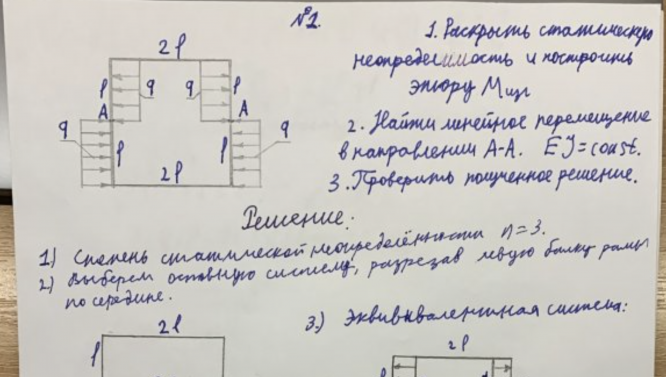 №1.
2l
1. Раскрыть статическую
неопределимость и построить
эпюру Mизг
l q q l
A A
q l l q
2l
2. Найти линейное перемещение
в направлении A-A. EJ=const.
3. Проверить полученное решение.
Решение:
1) Степень статической неопределённости n=3.
2) Выберем основную систему, разрезав левую балку рамы
по середине.
3.) Эквивквалентная система:
2l
l
2l